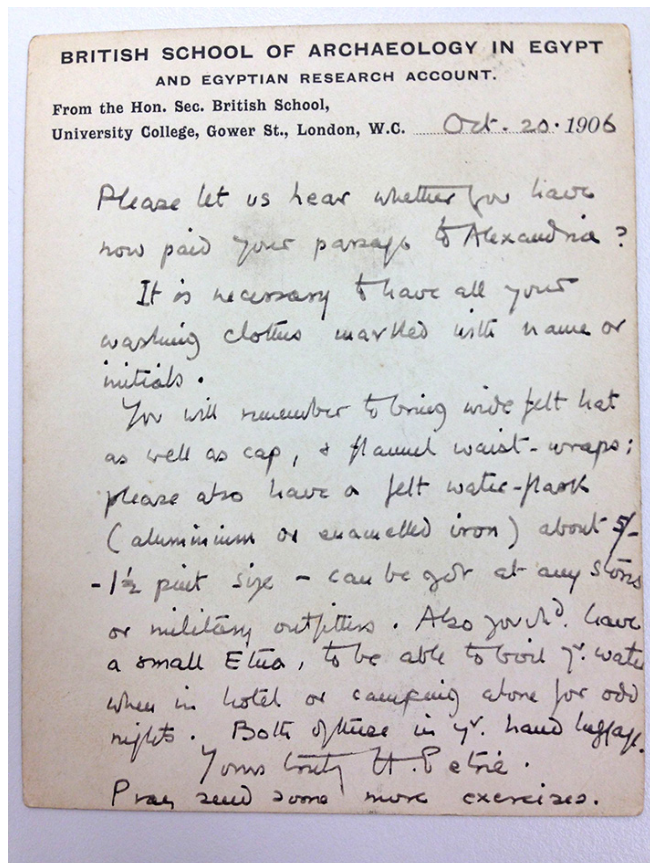 BRITISH SCHOOL OF ARCHAEOLOGY IN EGYPT
AND EGYPTIAN RESEARCH ACCOUNT.
From the Hon. Sec. British School,
University College, Gower St., London, W.C. Oct. 20. 1906
Please let us hear whether you have
now paid your passage to Alexandria ?
It is necessary to have all your
washing clothes marked with name or
initials.
You will remember to bring wide felt hat
as well as cap, & flannel waist-wraps;
please also have a felt water-flask
(aluminium or enamelled iron) about 5/-
- 1½ pint size - can be got at any stores
or military outfitters. Also you shd. have
a small Etna, to be able to boil yr. water
when in hotel or camping alone for odd
nights. Both of these in yr. hand luggage.
Yours truly H. Petrie.
Pray send some more exercises.